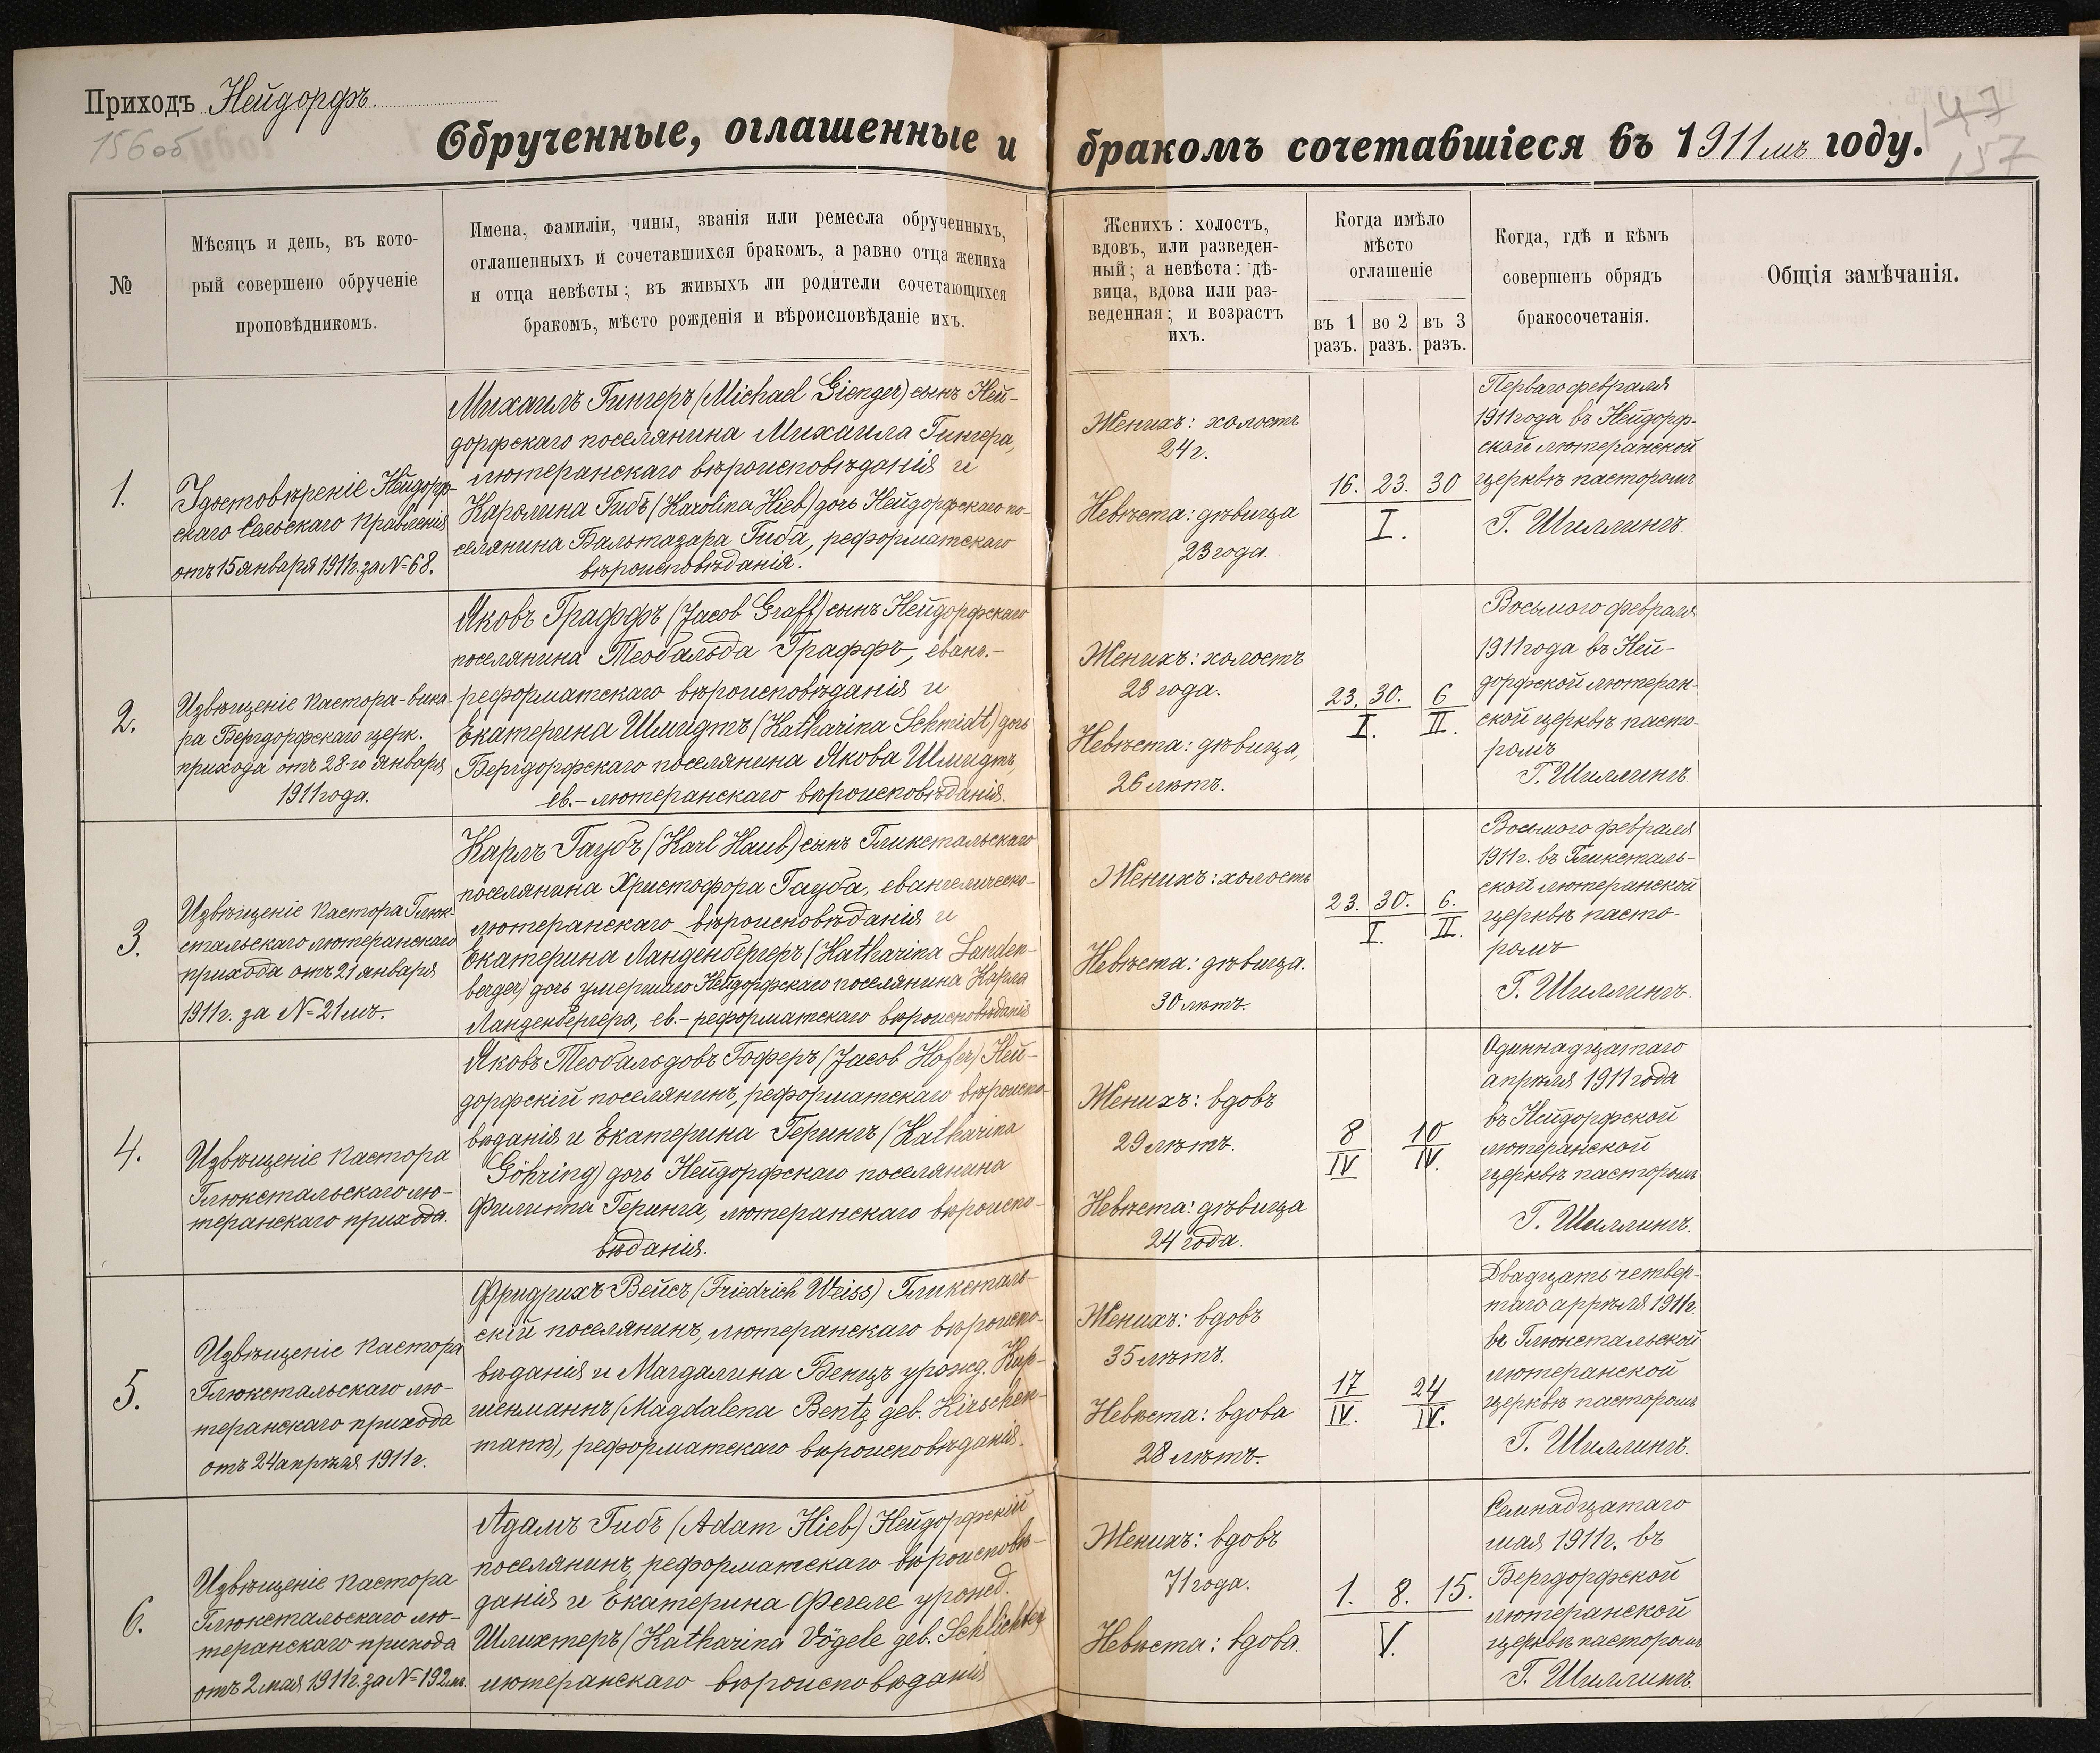 Приходъ Нейдорфъ.
156об
147
157
Обрученные, оглашенные и бракомъ сочетавшіеся въ 1911мъ году.
№
Мѣсяцъ и день, въ кото-
рый совершено обрученіе
проповѣдникомъ.
Имена, фамиліи, чины, званія или ремесла обрученныхъ,
оглашенныхъ и сочетавшихся бракомъ, а равно отца жениха
и отца невѣсты; въ живыхъ ли родители сочетающихся
бракомъ, мѣсто рожденія и вѣроисповѣданіе ихъ.
Женихъ: холостъ,
вдовъ, или разведен-
ный; а невѣста: дѣ-
вица, вдова или раз-
веденная; и возрастъ
ихъ.
Когда имѣло
мѣсто
оглашеніе
въ 1 разъ.
во 2 разъ.
въ 3 разъ.
Когда, гдѣ и кѣмъ
совершенъ обрядъ
бракосочетанія.
Общія замѣчанія.
1.
Удостовѣреніе Нейдорф-
скаго Сельскаго Правленія
отъ 15 января 1911г. за №68.
Михаилъ Гингеръ (Michael Gienger) сынъ Ней-
дорфскаго поселянина Михаила Гингера,
лютеранскаго вѣроисповѣданія и
Каролина Гибъ (Karolina Hieb) дочь Нейдорфскаго по-
селянина Бальтазара Гиба, реформатскаго
вѣроисповѣданія.
Женихъ: холостъ
24г.
Невѣста: дѣвица
23 года.
16. 23. 30
I.
Перваго февраля
1911 года въ Нейдорф-
ской лютеранской
церквѣ пасторомъ
Г. Шиллингъ.
2.
Извѣщеніе Пастора-вика-
ра Бергдорфскаго церк.
прихода отъ 28-го января
1911 года.
Яковъ Граффъ (Jacob Graff) сынъ Нейдорфскаго
поселянина Теобальда Граффъ, еванг.-
реформатскаго вѣроисповѣданія и
Екатерина Шмидтъ (Katharina Schmidt) дочь
Бергдорфскаго поселянина Якова Шмидтъ,
ев.-лютеранскаго вѣроисповѣданія.
Женихъ: холостъ
23 года.
Невѣста: дѣвица,
26 лѣтъ.
23. 30. 6
I. II.
Восьмого февраля
1911 года въ Ней-
дорфской лютеран-
ской церквѣ пасто-
ромъ
Г. Шиллингъ
3.
Извѣщеніе Пастора Глюк-
стальскаго лютеранскаго
прихода отъ 21 января
1911г. за №21мъ.
Карлъ Гаубъ (Karl Haub) сынъ Гликстальскаго
поселянина Христофора Гауба, евангелическо-
лютеранскаго вѣроисповѣданія и
Екатерина Ланденбергеръ (Katharina Landen-
berger) дочь умершаго Нейдорфскаго поселянина Карла
Ланденбергера, ев.-реформатскаго вѣроисповѣданія
Женихъ: холостъ
Невѣста: дѣвица.
30 лѣтъ.
23. 30. 6.
I. II.
Восьмого февраля
1911г. въ Гликсталь-
ской лютеранской
церквѣ пасто-
ромъ
Г. Шиллингъ.
4.
Извѣщеніе Пастора
Глюкстальскаго лю-
теранскаго прихода.
Яковъ Теобальдовъ Гоферъ (Jacob Hofer) Ней-
дорфскій поселянинъ, реформатскаго вѣроиспо-
вѣданія и Екатерина Герингъ (Katharina
Göhring) дочь Нейдорфскаго поселянина
Филиппа Геринга, лютеранскаго вѣроиспо-
вѣданія.
Женихъ: вдовъ
29 лѣтъ.
Невѣста: дѣвица
24 года.
8 10
IV IV.
Одиннадцатаго
апрѣля 1911 года
въ Нейдорфской
лютеранской
церквѣ пасторомъ
Г. Шиллингъ.
5.
Извѣщеніе Пастора
Глюкстальскаго лю-
теранскаго прихода
отъ 24 апрѣля 1911г.
Фридрихъ Вейсъ (Friedrich Weiss) Гликсталь-
скій поселянинъ, лютеранскаго вѣроиспо-
вѣданія и Магдалина Бенцъ урожд. Кир-
шенманнъ (Magdalena Bentz geb. Kirschen-
mann), реформатскаго вѣроисповѣданія.
Женихъ: вдовъ
35 лѣтъ.
Невѣста: вдова
28 лѣтъ.
17 24
IV. IV.
Двадцать четвер-
таго аррѣля 1911г.
въ Глюкстальской
лютеранской
церквѣ пасторомъ
Г. Шиллингъ.
6.
Извѣщеніе Пастора
Глюкстальскаго лю-
теранскаго прихода
отъ 2 мая 1911г. за №192мъ.
Адамъ Гибъ (Adam Hieb) Нейдорфскій
поселянинъ, реформатскаго вѣроисповѣ-
данія и Екатерина Фегеле урожд.
Шлихтеръ (Katharina Vögele geb. Schlichter)
лютеранскаго вѣроисповѣданія
Женихъ: вдовъ
71 года.
Невѣста: вдова.
1. 8. 15.
V.
Семнадцатаго
мая 1911г. въ
Бергдорфской
лютеранской
церквѣ пасторомъ
Г. Шиллингъ.